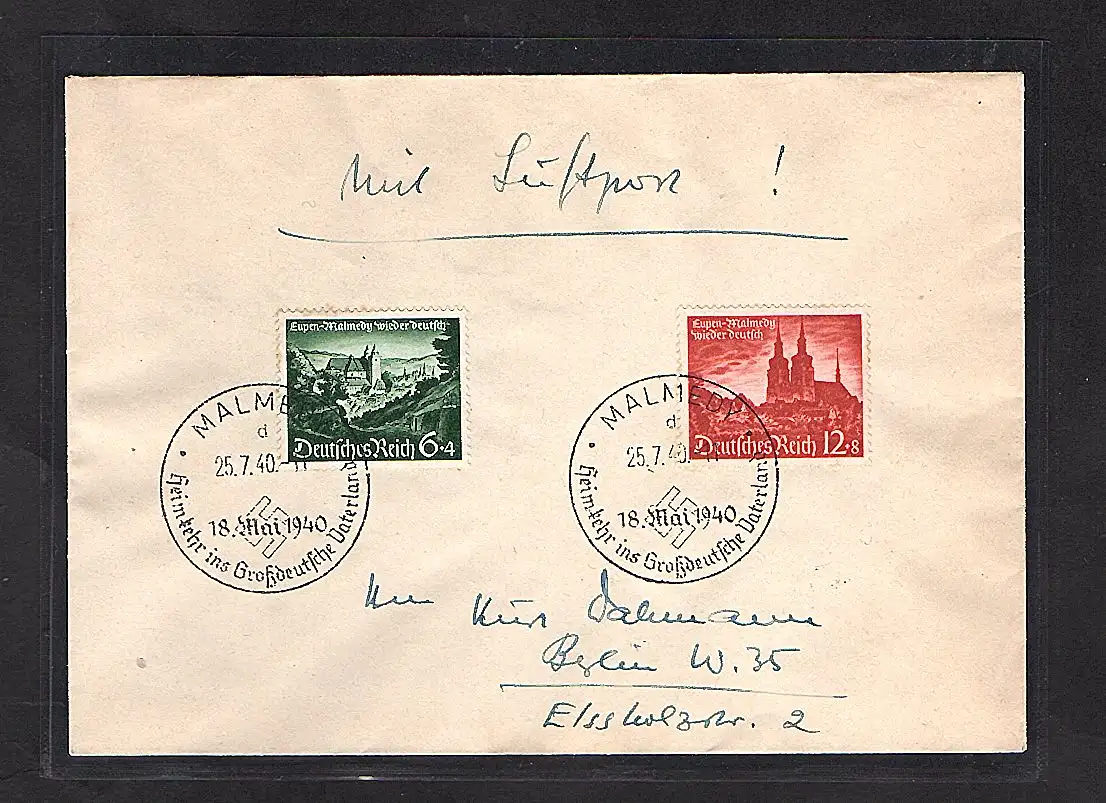 Mit Luftpost !
Eupen-Malmedy wieder deutsch
Deutsches Reich 6+4
Eupen-Malmedy
wieder deutsch
Deutsches Reich 12+8
MALME
d
25.7.40.-11
18. Mai 1940
Heimkehr ins Großdeutsche Vaterland
MALMEDY
d
25.7.40.-11
18. Mai 1940
Heimkehr ins Großdeutsche Vaterland
Kurt Dahmann
Berlin W. 35
Elssholzstr. 2